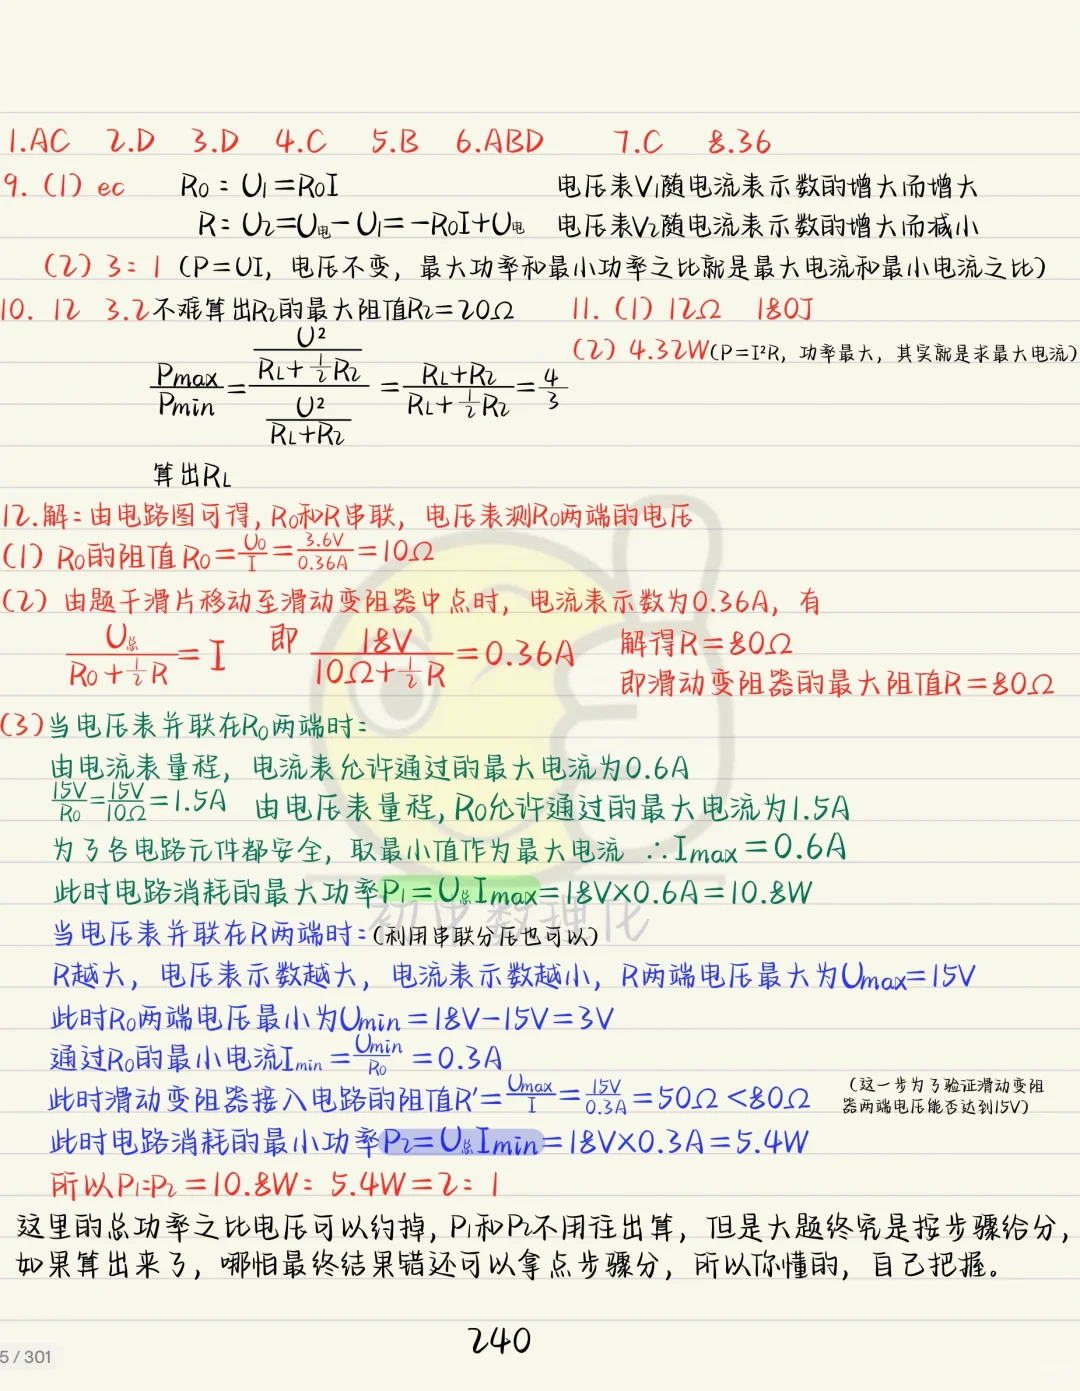 1.AC 2.D 3.D 4.C 5.B 6.ABD 7.C 8.36
9.(1) ec R₀:U₁=R₀I 电压表V₁随电流表示数的增大而增大
R:U₂=U电-U₁=-R₀I+U电 电压表V₂随电流表示数的增大而减小
(2)3:1(P=UI,电压不变,最大功率和最小功率之比就是最大电流和最小电流之比)
10. 12 3.2不难算出R₂的最大阻值R₂=20Ω 11.(1)12Ω 180J
(2)4.32W(P=I²R,功率最大,其实就是求最大电流)
Pmax/Pmin=(U²/(RL+½R₂))/(U²/(RL+R₂))=(RL+R₂)/(RL+½R₂)=4/3
算出RL
12.解:由电路图可得,R₀和R串联,电压表测R₀两端的电压
(1)R₀的阻值R₀=U₀/I=3.6V/0.36A=10Ω
(2)由题干滑片移动至滑动变阻器中点时,电流表示数为0.36A,有
U总/(R₀+½R)=I 即 18V/(10Ω+½R)=0.36A 解得R=80Ω
即滑动变阻器的最大阻值R=80Ω
(3)当电压表并联在R₀两端时:
由电流表量程,电流表允许通过的最大电流为0.6A
15V/R₀=15V/10Ω=1.5A 由电压表量程,R₀允许通过的最大电流为1.5A
为了各电路元件都安全,取最小值作为最大电流 ∴Imax=0.6A
此时电路消耗的最大功率P₁=U总Imax=18V×0.6A=10.8W
初中数理化
当电压表并联在R两端时:(利用串联分压也可以)
R越大,电压表示数越大,电流表示数越小,R两端电压最大为Umax=15V
此时R₀两端电压最小为Umin=18V-15V=3V
通过R₀的最小电流Imin=Umin/R₀=0.3A
此时滑动变阻器接入电路的阻值R'=Umax/I=15V/0.3A=50Ω<80Ω
(这一步为了验证滑动变阻
器两端电压能否达到15V)
此时电路消耗的最小功率P₂=U总Imin=18V×0.3A=5.4W
所以P₁:P₂=10.8W:5.4W=2:1
这里的总功率之比电压可以约掉,P₁和P₂不用往出算,但是大题终究是按步骤给分,
如果算出来了,哪怕最终结果错还可以拿点步骤分,所以你懂的,自己把握。
240
5/301